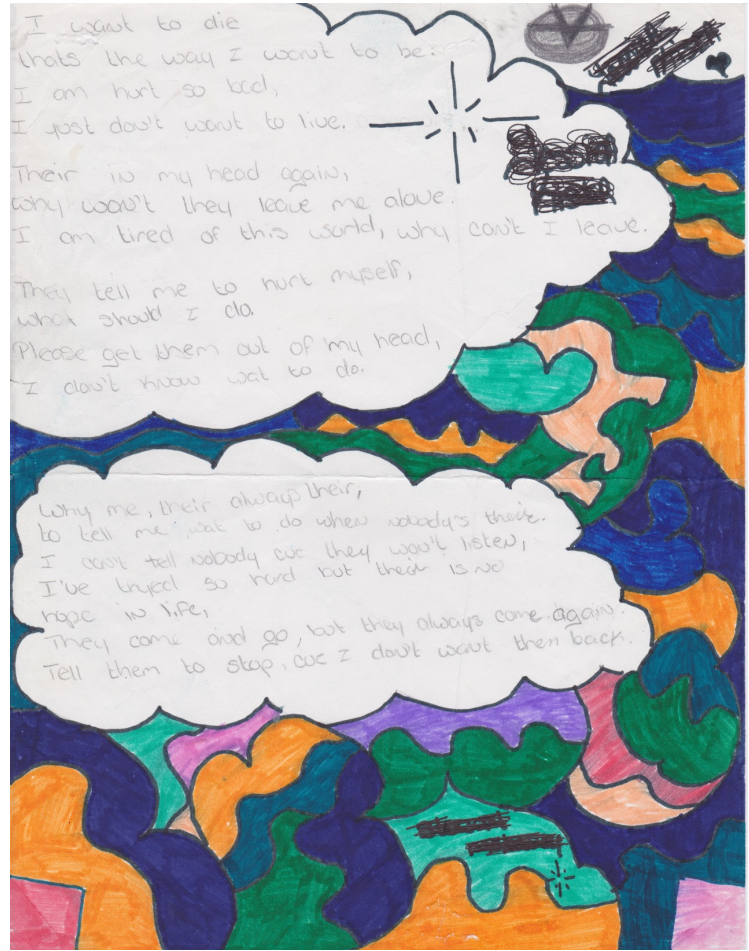 I want to die
thats the way I want to be.
I am hurt so bad,
I just don't want to live.
Their in my head again,
why won't they leave me alone.
I am tired of this world, why can't I leave.
They tell me to hurt myself,
what should I do.
Please get them out of my head,
I don't know wat to do.
Why me, their always their,
to tell me wat to do when nobody's their.
I can't tell nobody cuz they won't listen,
I've tryed so hard but their is no
hope in life,
They come and go, but they always come again.
Tell them to stop, cuz I don't want them back.